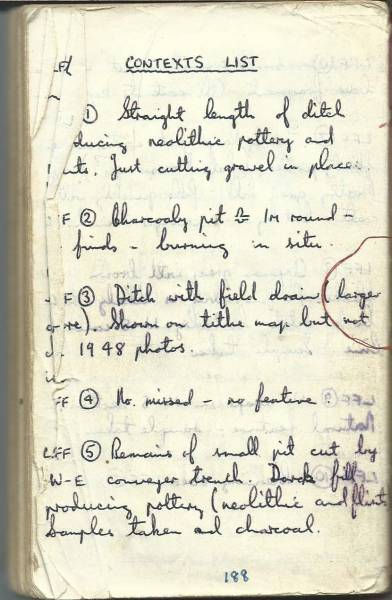 LFF
CONTEXTS LIST
① Straight length of ditch
ducing neolithic pottery and
Just cutting gravel in places.
F ② Charcoaly pit ≏ 1m round -
finds - burning in situ.
F ③ Ditch with field drain (larger
re). Shown on tithe map but not
1948 photos.
FF ④ No. missed - no feature?
LFF ⑤ Remains of small pit cut by
W-E conveyer trench. Dark fill
producing pottery (neolithic and flint.
Samples taken and charcoal.
188